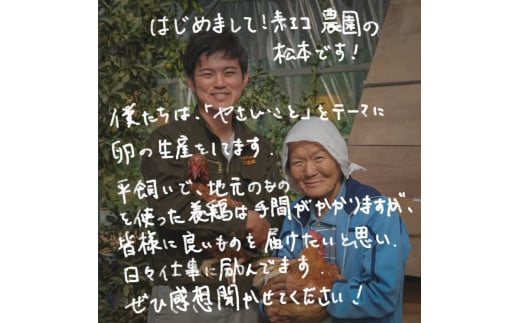 はじめまして!赤エコ農園の
松本です!
僕たちは、「やさしいこと」をテーマに
卵の生産をしてます.
平飼いで、地元のもの
を使った養鶏は手間がかかりますが、
皆様に良いものを届けたいと思い.
日々仕事に励んでます.
ぜひ感想聞かせてください!